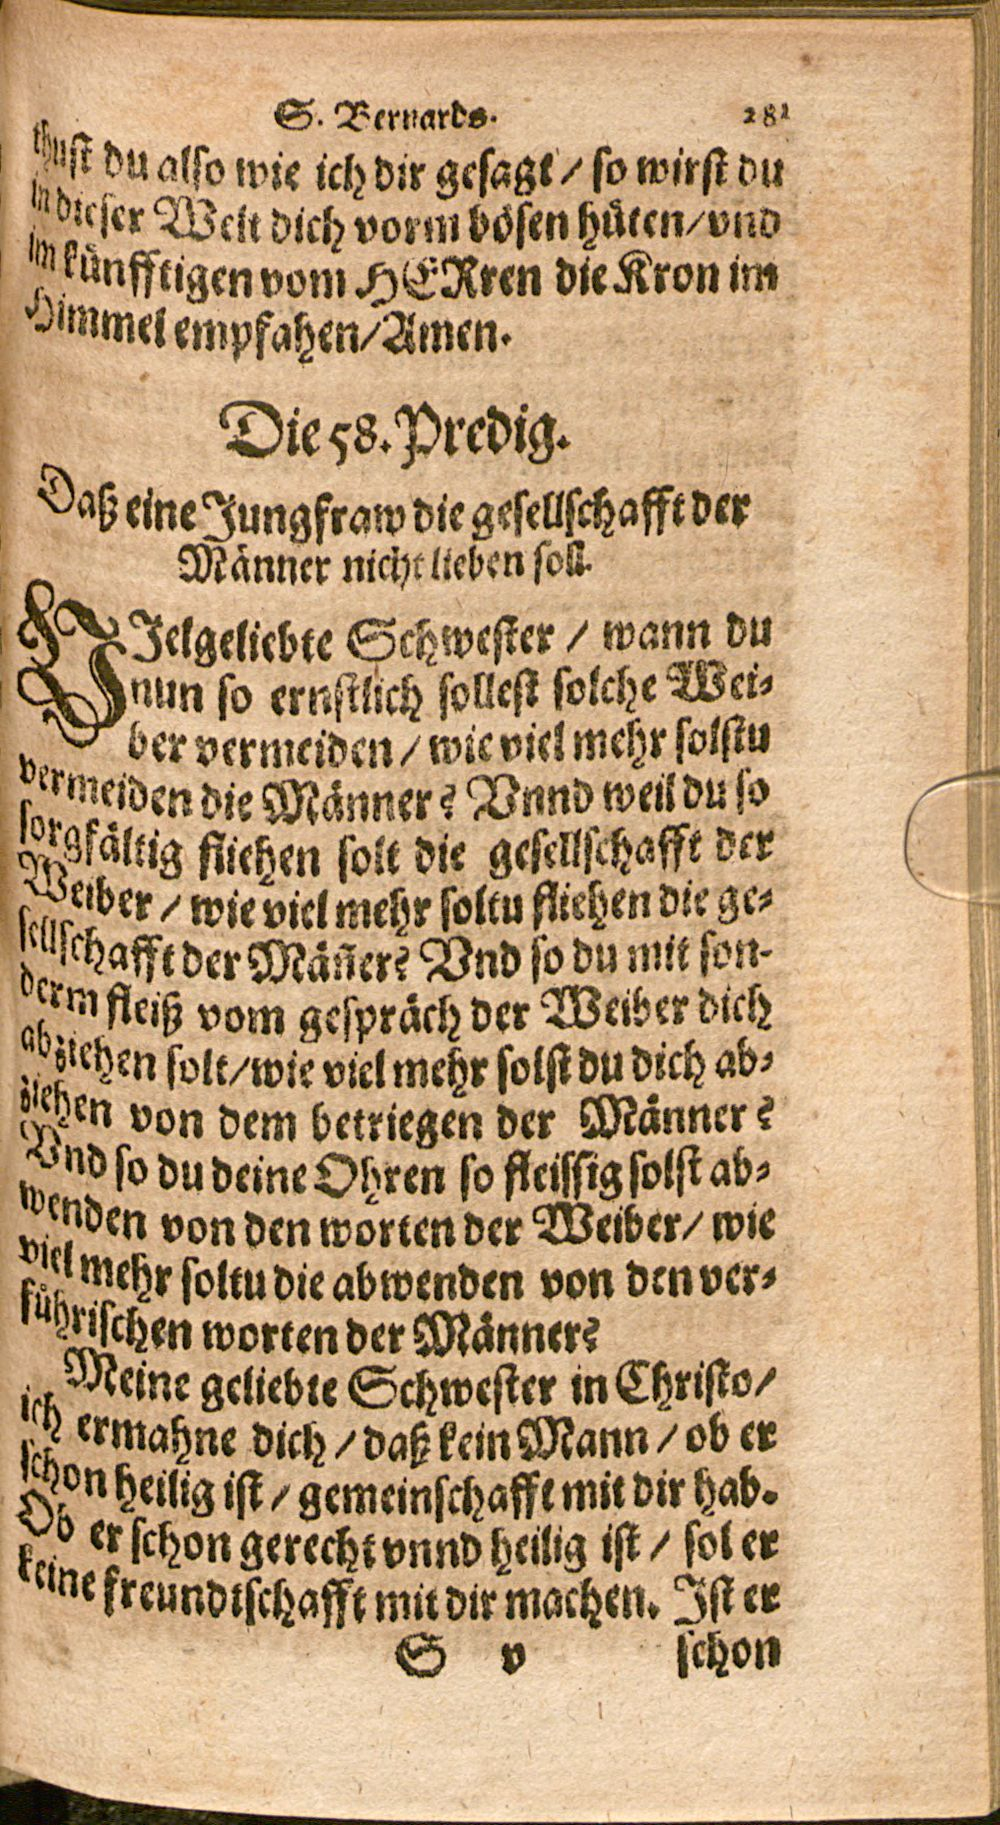 S. Bernards. 281
thust du also wie ich dir gesagt / so wirst du
in dieser Welt dich vorm bösen hüten / vnd
im künfftigen vom HERren die Kron im
Himmel empfahen / Amen.
Die 58. Predig.
Daß eine Jungfraw die gesellschafft der
Männer nicht lieben soll.
VIelgeliebte Schwester / wann du
nun so ernstlich sollest solche Wei-
ber vermeiden / wie viel mehr solstu
vermeiden die Männer? Vnnd weil du so
sorgfältig fliehen solt die gesellschafft der
Weiber / wie viel mehr soltu fliehen die ge-
sellschafft der Mäñer? Vnd so du mit son-
derm fleiß vom gespräch der Weiber dich
abziehen solt / wie viel mehr solst du dich ab-
ziehen von dem betriegen der Männer?
Vnd so du deine Ohren so fleissig solst ab-
wenden von den worten der Weiber / wie
viel mehr soltu die abwenden von den ver-
führischen worten der Männer?
Meine geliebte Schwester in Christo /
ich ermahne dich / daß kein Mann / ob er
schon heilig ist / gemeinschafft mit dir hab.
Ob er schon gerecht vnnd heilig ist / sol er
keine freundtschafft mit dir machen. Ist er
S v schon